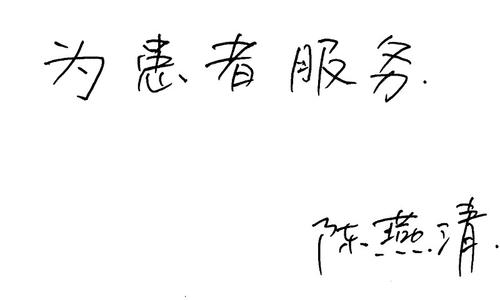 为患者服务.
陈燕清.